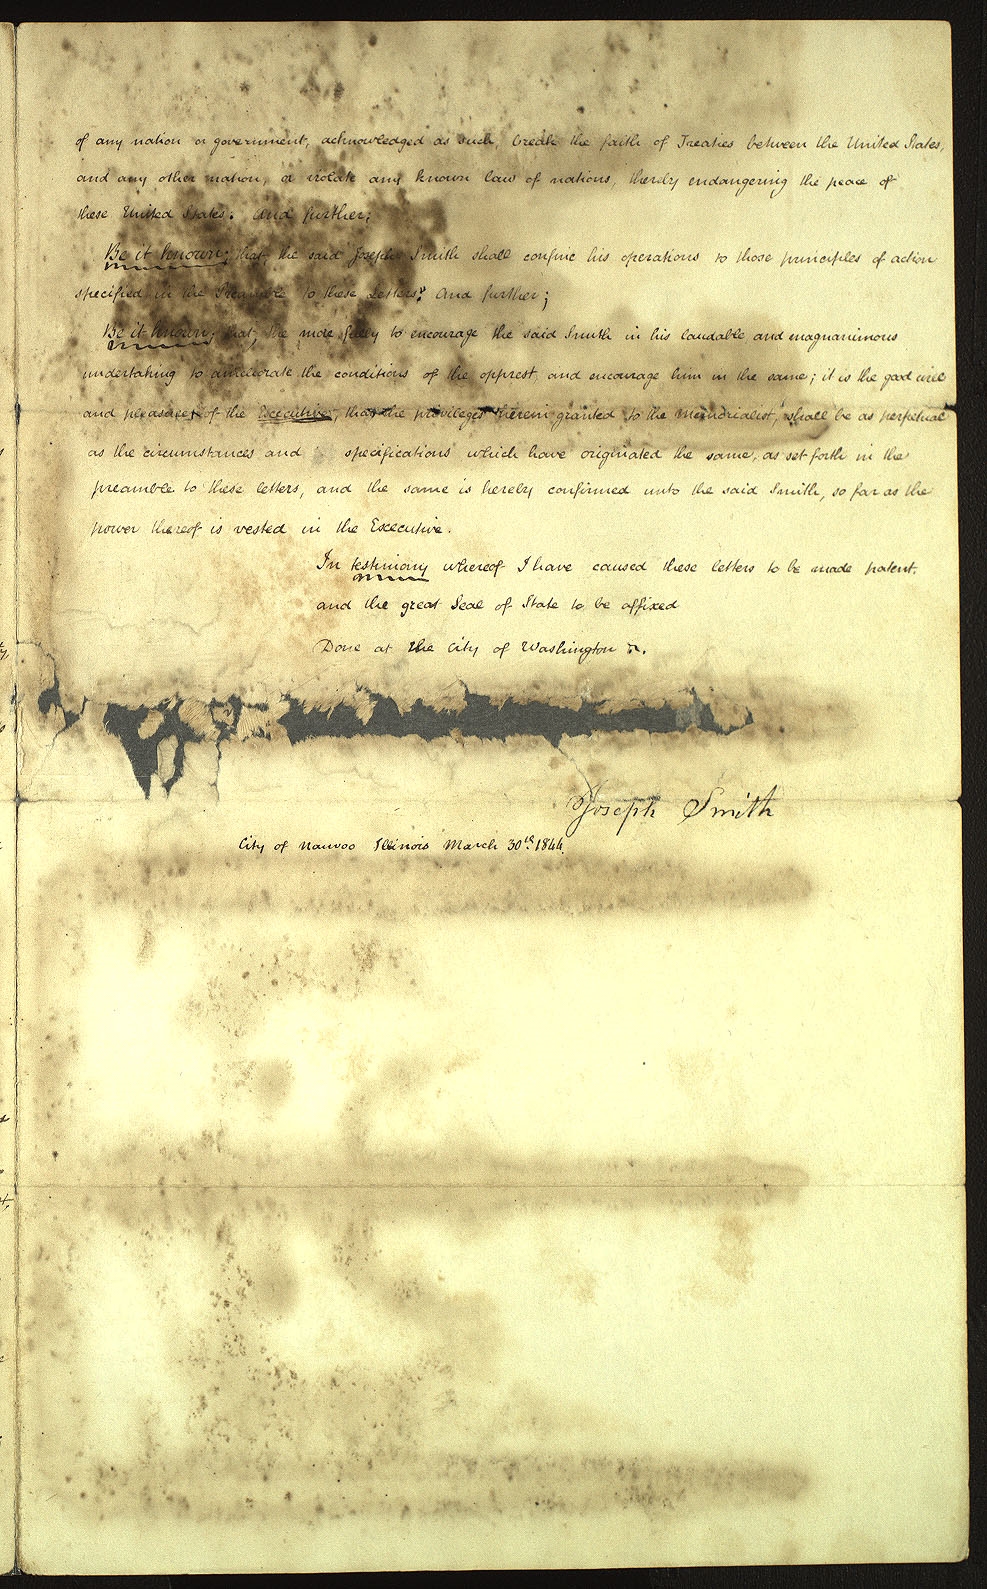 of any nation or government, acknowledged as such, break the faith of Treaties between the United States,
and any other nation, or violate any known law of nations, thereby endangering the peace of
these United States. And further;
Be it known; that, the said Joseph Smith shall confine his operations to those principles of action
specified in the Preamble to these Letters. And further;
Be it known; that, the more fully to encourage the said Smith in his laudable and magnanimous
undertaking to ameliorate the conditions of the opprest, and encourage him in the same; it is the good will
and pleasure of the Executive, that the privileges herein granted to the Memorialist, shall be as perpetual
as the circumstances and specifications which have originated the same, as set forth in the
preamble to these letters, and the same is hereby confirmed unto the said Smith, so far as the
power thereof is vested in the Executive.
In testimony whereof I have caused these letters to be made patent.
and the great Seal of State to be affixed
Done at the City of Washington &c.
Joseph Smith
City of Nauvoo Illinois March 30th. 1844.